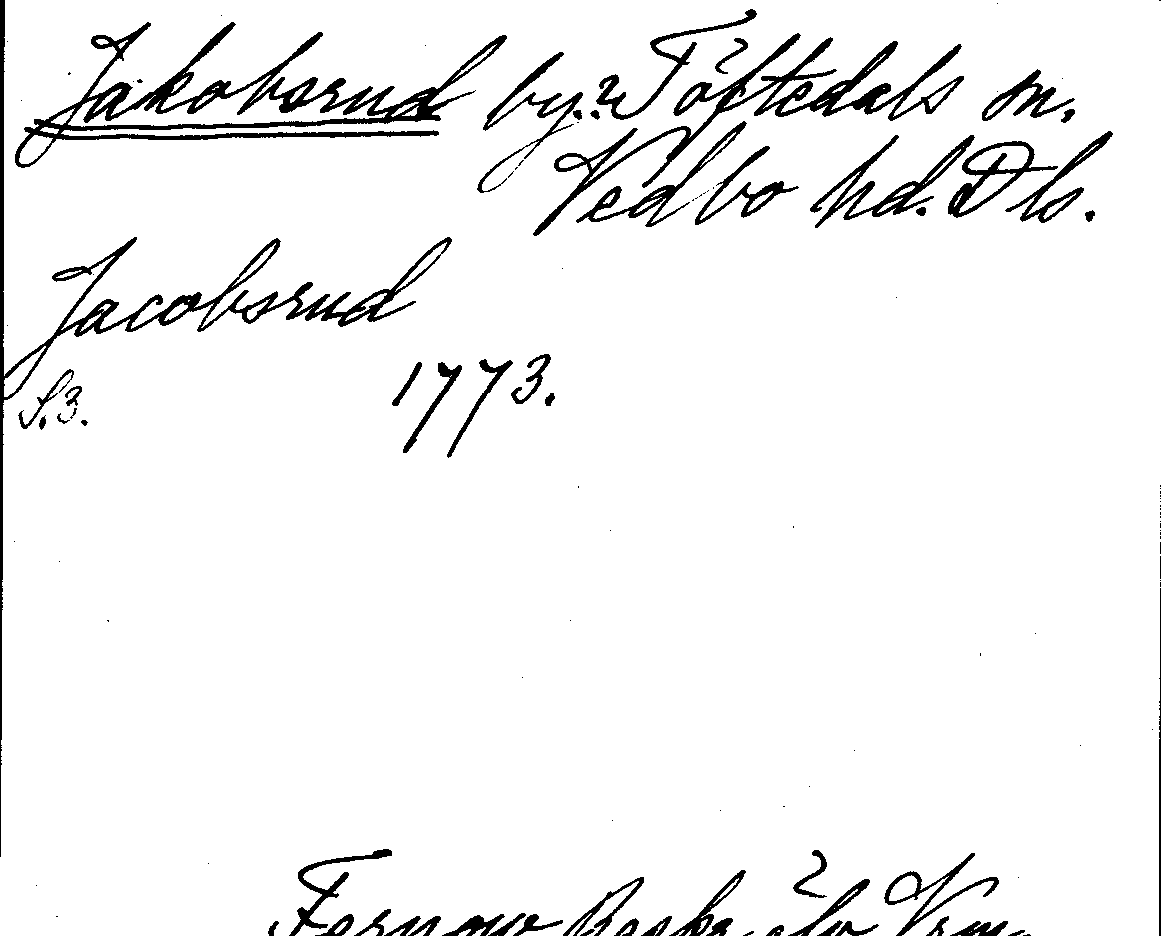 Jakobsrud by.? Töftedals sn.
Vedbo hd. Dls.
Jacobsrud
S.3. 1773.
Fernow Beskr. öfv Vrm.